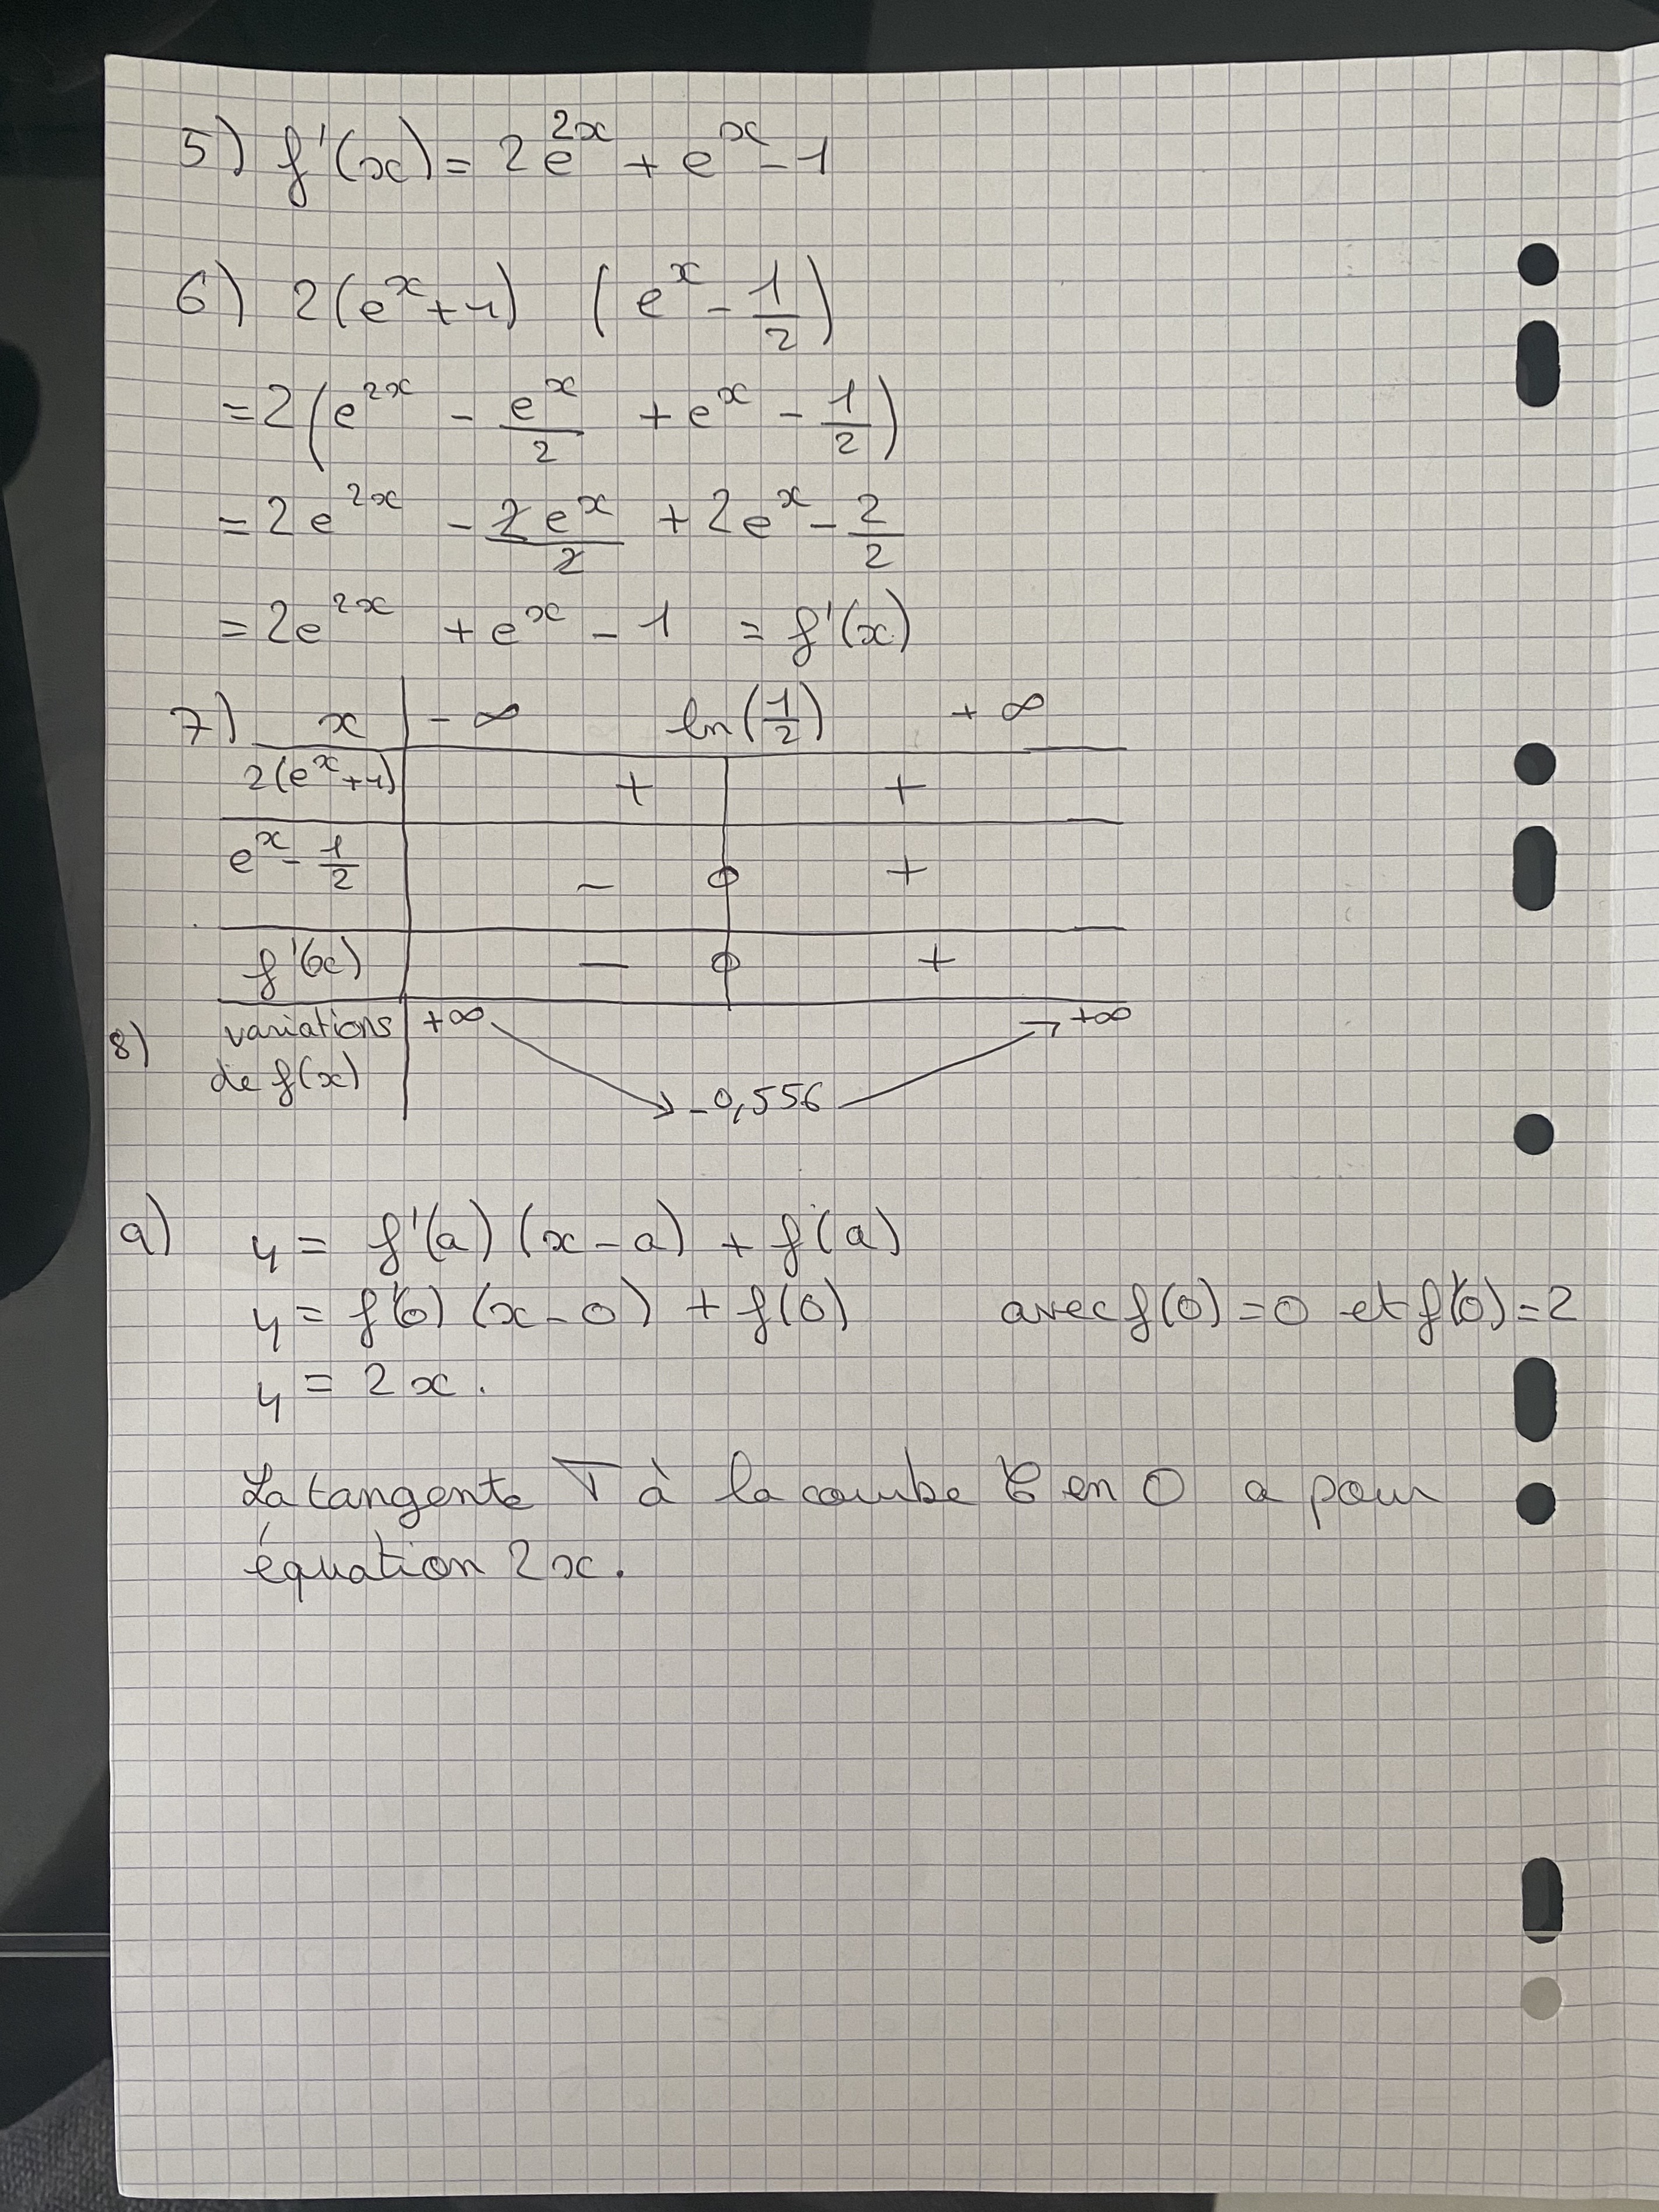 5) f'(x) = 2e^{2x} + e^x - 1
6) 2(e^x + 1) (e^x - \frac{1}{2})
= 2(e^{2x} - \frac{e^x}{2} + e^x - \frac{1}{2})
= 2e^{2x} - \frac{2e^x}{2} + 2e^x - \frac{2}{2}
= 2e^{2x} + e^x - 1 = f'(x)
7) x | -∞ ln(\frac{1}{2}) +∞
2(e^x + 1) | + | +
e^x - \frac{1}{2} | - 0 +
f'(x) | - 0 +
8) variations de f(x) | +∞ ↘ -0,556 ↗ +∞
9) y = f'(a) (x - a) + f(a)
y = f'(0) (x - 0) + f(0) avec f(0) = 0 et f'(0) = 2
y = 2x.
La tangente T à la courbe C en 0 a pour
équation 2x.